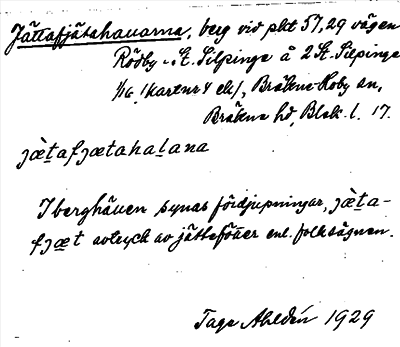 Jättafjätahallarna, berg vid pkt 57,29 vägen
Rödby - St. Silpinge å 2 St. Silpinge
1/16, Bräkne-Hoby sn,
Bräkne hd, Blek. l. 17.
jæt̲afjætahal̲ana
I berghällen synas fördjupningar, jæt̲a-
fjæt avtryck av jättefötter enl. folksägnen.
Tage Ahldén 1929